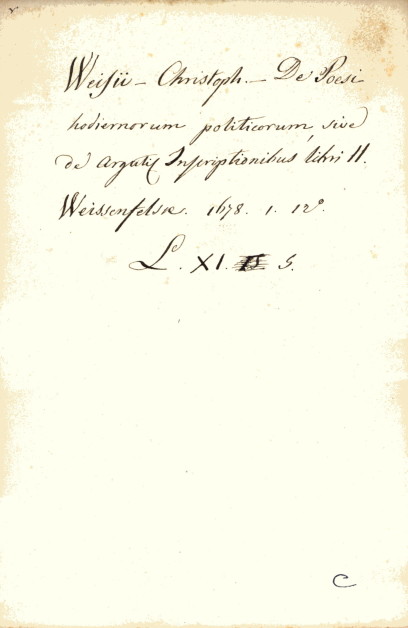 Weisii – Christoph. – De Poesi
hodiernorum politicorum, sive
de argutis Inscriptionibus libri II.
Weissenfelsae. 1678. 1. 12°.
L. XI. 5.
C